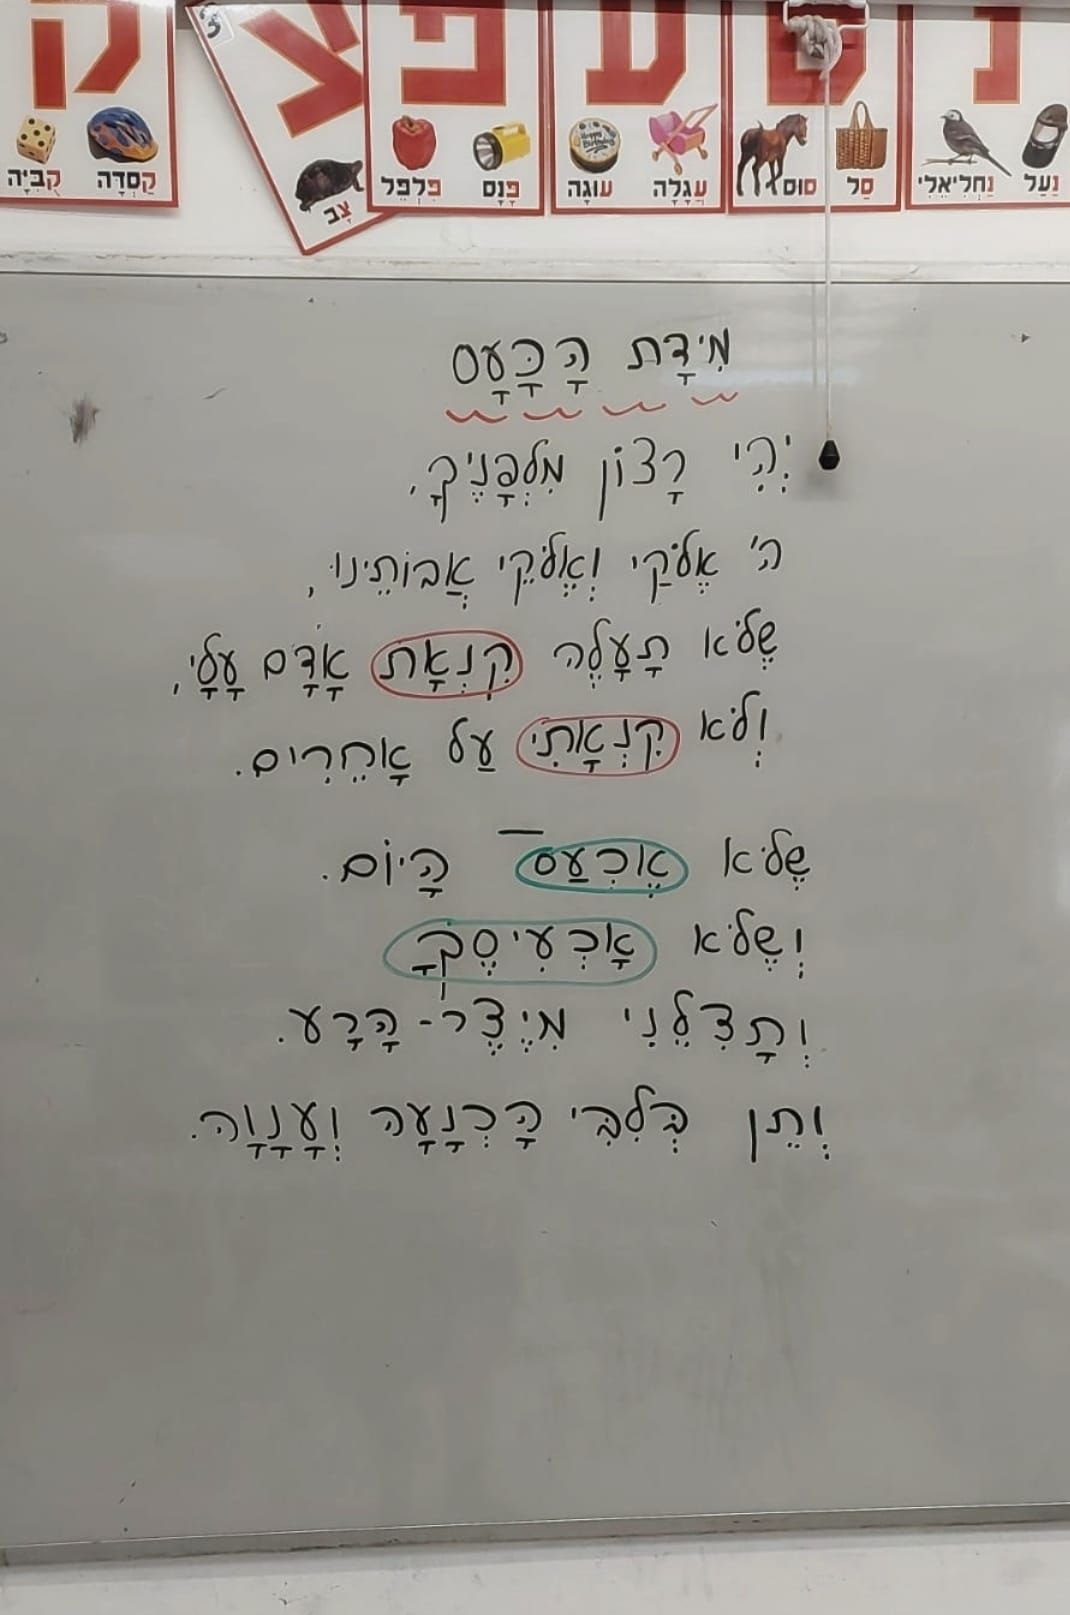 נ ס ע פ צ ק
3
נַעַל נַחְלִיאֵלִי סַל סוּס עֲגָלָה עוּגָה פָּנָס פִּלְפֵּל צָב קַסְדָּה קֻבִּיָּה
Happy Birthday
מִידָּת הָכָּעָס
יְהִי רָצוֹן מִלְּפָנֶיךָ,
ה' אֱלֹקַי וֶאֱלֹקֵי אֲבוֹתֵינוּ,
שֶׁלֹּא תָּעֳלֶה קִנְאָת אָדָם עָלָי,
וְלֹא קִנְאָתִי עַל אָחֵרִים.
שֶׁלֹּא אֶכְעַס הָיּוֹם.
וְשֶׁלֹּא אָכְעִיסֶךָ
וְתָצִּלֵנִי מִיֶּצֶר - הָרָע.
וְתֵן בְּלִבִּי הָכְנָעָה וְעָנָוָה.